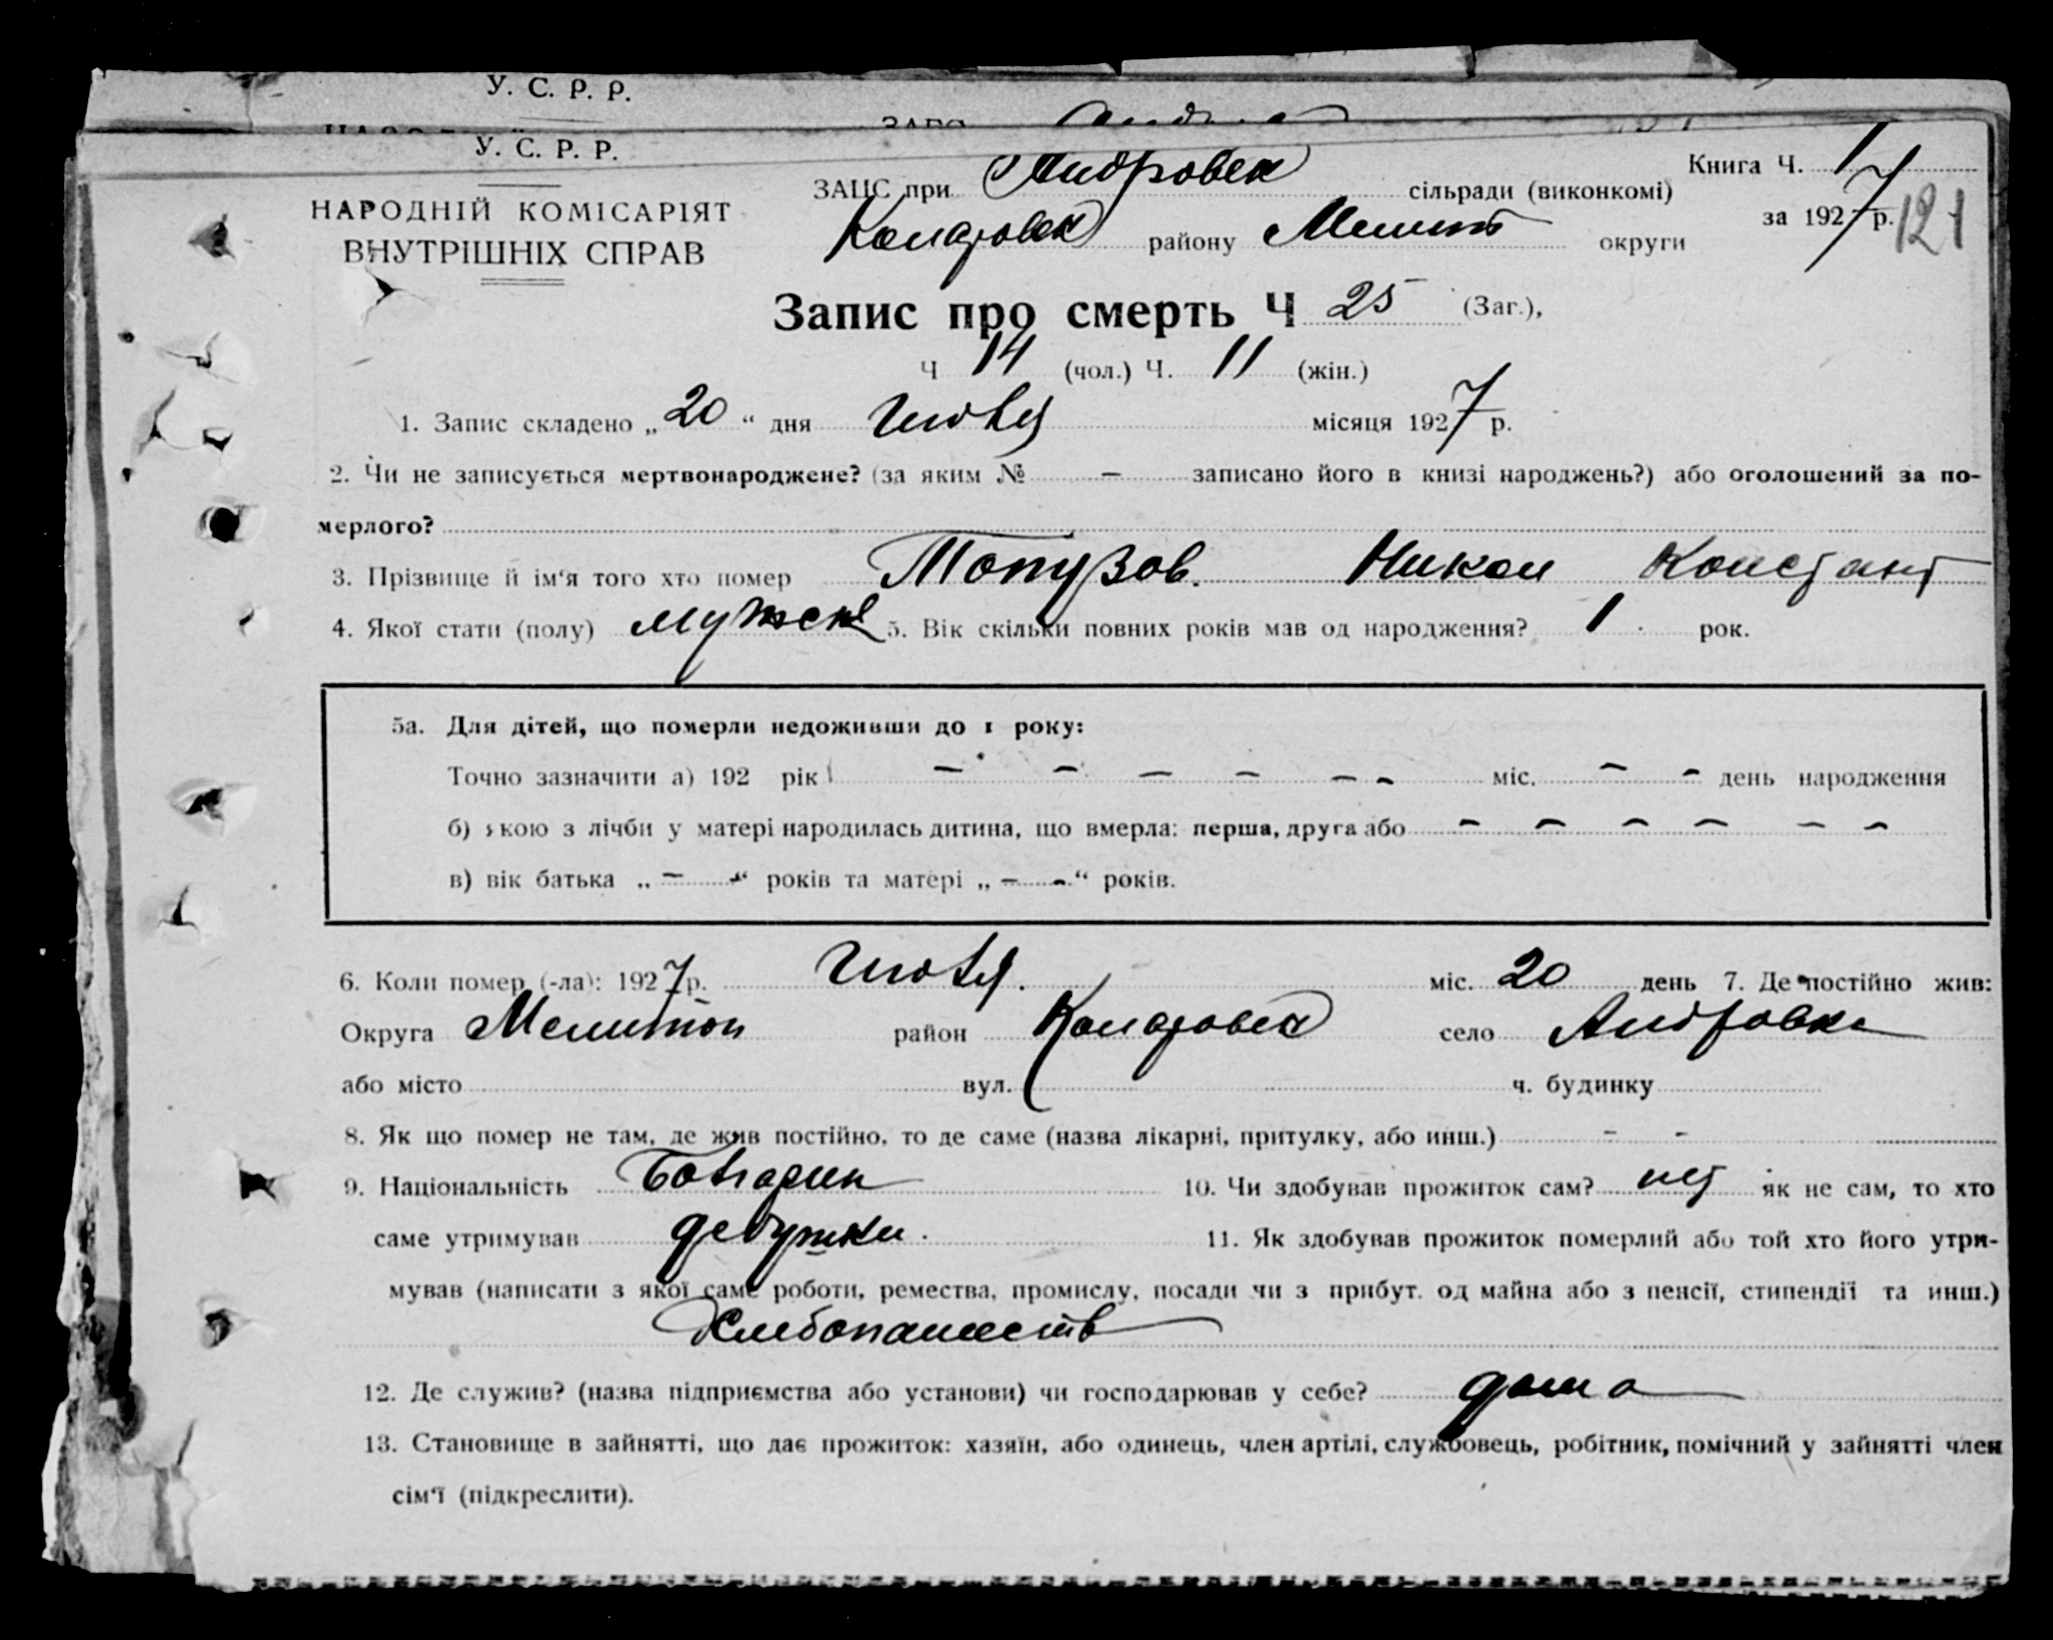 У. С. Р. Р.
У. С. Р. Р.
НАРОДНІЙ КОМІСАРІЯТ
ВНУТРІШНІХ СПРАВ
Книга Ч. 1
за 1927 р. 121
ЗАЦС при Андровск сільради (виконкомі)
Коларовск району Мелит округи
Запис про смерть Ч 25 (Заг.),
Ч 14 (чол.) Ч. 11 (жін.)
1. Запис складено „20“ дня Июля місяця 1927 р.
2. Чи не записується мертвонароджене? (за яким № — записано його в книзі народжень?) або оголошений за по-
мерлого?
3. Прізвище й ім'я того хто помер Топузов. Никол Констант
4. Якої стати (полу) мужск 5. Вік скільки повних років мав од народження? 1 рок.
5а. Для дітей, що померли недоживши до 1 року:
Точно зазначити а) 192 рік — — — — — — міс. — — день народження
б) якою з лічби у матері народилась дитина, що вмерла: перша, друга або — — — — — —
в) вік батька „— —“ років та матері „— —“ років.
6. Коли помер (-ла): 1927 р. Июля. міс. 20 день 7. Де постійно жив:
Округа Мелитоп район Коларовск село Андровка
або місто вул. ч. будинку
8. Як що помер не там, де жив постійно, то де саме (назва лікарні, притулку, або инш.) - -
9. Національність Болгарин 10. Чи здобував прожиток сам? нет як не сам, то хто
саме утримував дедушки. 11. Як здобував прожиток померлий або той хто його утри-
мував (написати з якої саме роботи, ремества, промислу, посади чи з прибут. од майна або з пенсії, стипендії та инш.)
Хлебопашеств
12. Де служив? (назва підприємства або установи) чи господарював у себе? дома
13. Становище в зайнятті, що дає прожиток: хазяїн, або одинець, член артілі, службовець, робітник, помічний у зайнятті член
сім'ї (підкреслити).